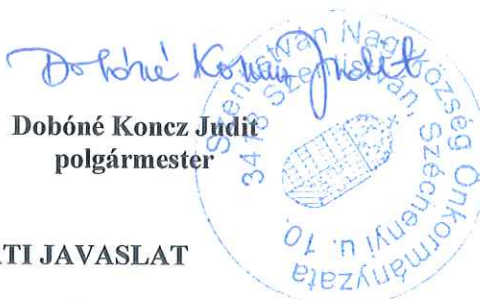 Dobóné Koncz Judit
Dobóné Koncz Judit
polgármester
Szentistván Nagyközség Önkormányzata
3418 Szentistván, Széchenyi u. 10.
TI JAVASLAT